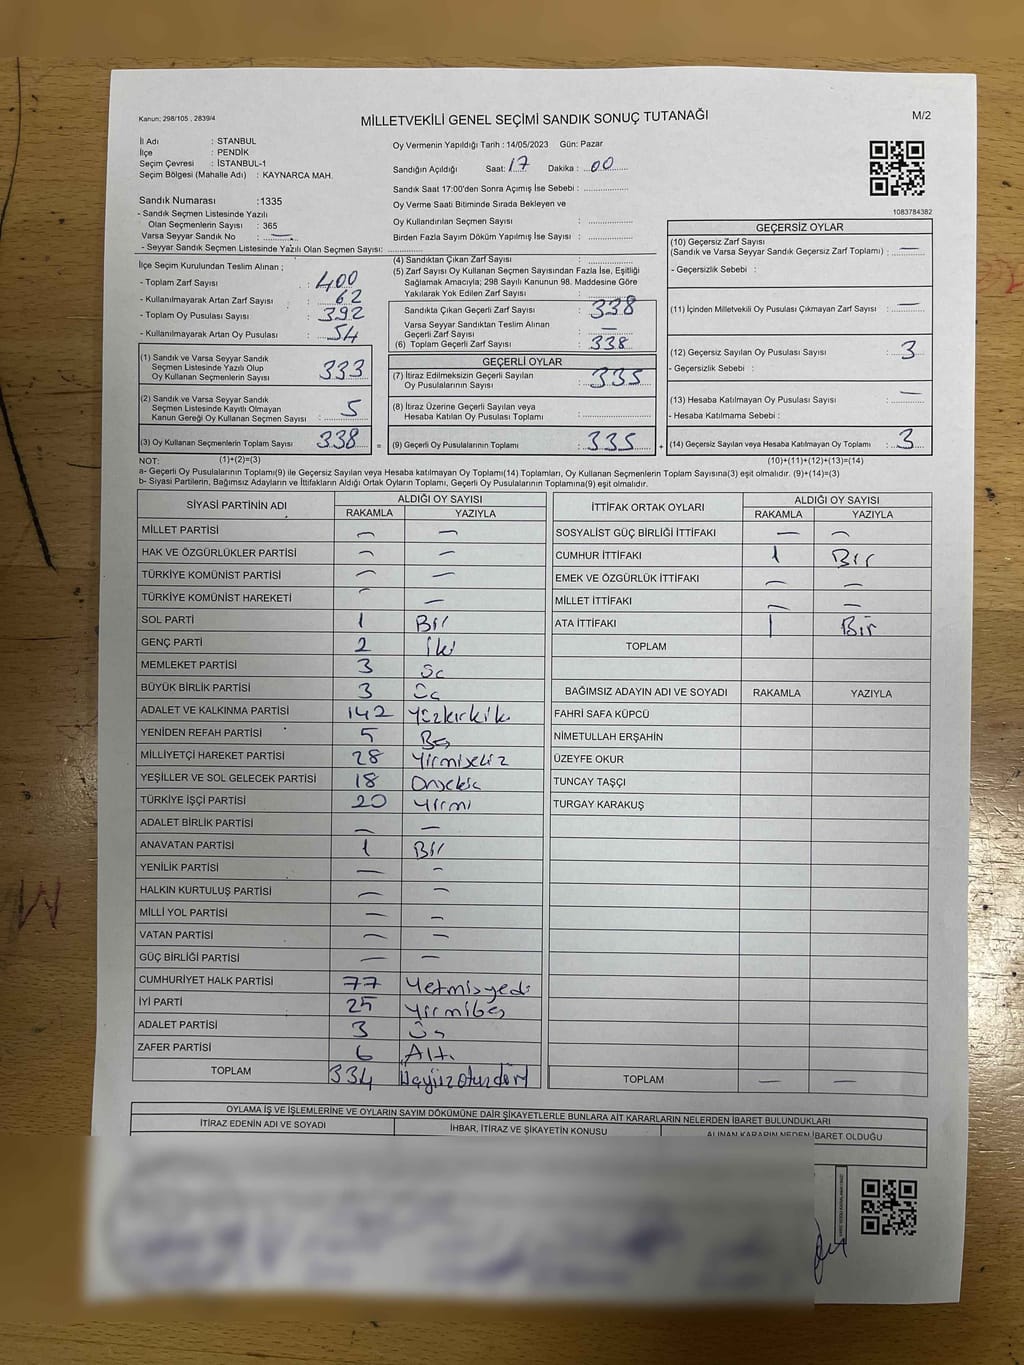 Kanun: 298/105 , 2839/4
MİLLETVEKİLİ GENEL SEÇİMİ SANDIK SONUÇ TUTANAĞI
M/2
İl Adı : STANBUL
İlçe : PENDİK
Seçim Çevresi : İSTANBUL-1
Seçim Bölgesi (Mahalle Adı) : KAYNARCA MAH.
Oy Vermenin Yapıldığı Tarih : 14/05/2023 Gün: Pazar
Sandığın Açıldığı Saat: 17 Dakika : 00
Sandık Saat 17:00'den Sonra Açımış İse Sebebi :
Oy Verme Saati Bitiminde Sırada Bekleyen ve
Oy Kullandırılan Seçmen Sayısı :
Birden Fazla Sayım Döküm Yapılmış İse Sayısı :
1083784382
Sandık Numarası :1335
- Sandık Seçmen Listesinde Yazılı
Olan Seçmenlerin Sayısı : 365
Varsa Seyyar Sandık No : —
- Seyyar Sandık Seçmen Listesinde Yazılı Olan Seçmen Sayısı:
İlçe Seçim Kurulundan Teslim Alınan ;
- Toplam Zarf Sayısı : 400
- Kullanılmayarak Artan Zarf Sayısı : 62
- Toplam Oy Pusulası Sayısı : 392
- Kullanılmayarak Artan Oy Pusulası : 54
(1) Sandık ve Varsa Seyyar Sandık
Seçmen Listesinde Yazılı Olup
Oy Kullanan Seçmenlerin Sayısı 333
(2) Sandık ve Varsa Seyyar Sandık
Seçmen Listesinde Kayıtlı Olmayan
Kanun Gereği Oy Kullanan Seçmen Sayısı : 5
(3) Oy Kullanan Seçmenlerin Toplam Sayısı 338 =
(4) Sandıktan Çıkan Zarf Sayısı :
(5) Zarf Sayısı Oy Kullanan Seçmen Sayısından Fazla İse, Eşitliği
Sağlamak Amacıyla; 298 Sayılı Kanunun 98. Maddesine Göre
Yakılarak Yok Edilen Zarf Sayısı :
Sandıkta Çıkan Geçerli Zarf Sayısı : 338
Varsa Seyyar Sandıktan Teslim Alınan
Geçerli Zarf Sayısı : —
(6) Toplam Geçerli Zarf Sayısı : 338
GEÇERLİ OYLAR
(7) İtiraz Edilmeksizin Geçerli Sayılan
Oy Pusulalarının Sayısı : 335
(8) İtiraz Üzerine Geçerli Sayılan veya
Hesaba Katılan Oy Pusulası Toplamı :
(9) Geçerli Oy Pusulalarının Toplamı : 335 +
GEÇERSİZ OYLAR
(10) Geçersiz Zarf Sayısı
(Sandık ve Varsa Seyyar Sandık Geçersiz Zarf Toplamı) : —
- Geçersizlik Sebebi :
(11) İçinden Milletvekili Oy Pusulası Çıkmayan Zarf Sayısı : —
(12) Geçersiz Sayılan Oy Pusulası Sayısı : 3
- Geçersizlik Sebebi :
(13) Hesaba Katılmayan Oy Pusulası Sayısı : —
- Hesaba Katılmama Sebebi :
(14) Geçersiz Sayılan veya Hesaba Katılmayan Oy Toplamı : 3
NOT: (1)+(2)=(3) (10)+(11)+(12)+(13)=(14)
a- Geçerli Oy Pusulalarının Toplamı(9) ile Geçersiz Sayılan veya Hesaba katılmayan Oy Toplamı(14) Toplamları, Oy Kullanan Seçmenlerin Toplam Sayısına(3) eşit olmalıdır. (9)+(14)=(3)
b- Siyasi Partilerin, Bağımsız Adayların ve İttifakların Aldığı Ortak Oyların Toplamı, Geçerli Oy Pusulalarının Toplamına(9) eşit olmalıdır.
SİYASİ PARTİNİN ADI ALDIĞI OY SAYISI
RAKAMLA YAZIYLA
MİLLET PARTİSİ — —
HAK VE ÖZGÜRLÜKLER PARTİSİ — —
TÜRKİYE KOMÜNİST PARTİSİ — —
TÜRKİYE KOMÜNİST HAREKETİ — —
SOL PARTİ 1 Bir
GENÇ PARTİ 2 İki
MEMLEKET PARTİSİ 3 Üç
BÜYÜK BİRLİK PARTİSİ 3 Üç
ADALET VE KALKINMA PARTİSİ 142 Yüzkırkik
YENİDEN REFAH PARTİSİ 5 Beş
MİLLİYETÇİ HAREKET PARTİSİ 28 Yirmisekiz
YEŞİLLER VE SOL GELECEK PARTİSİ 18 Onsekiz
TÜRKİYE İŞÇİ PARTİSİ 20 Yirmi
ADALET BİRLİK PARTİSİ — —
ANAVATAN PARTİSİ 1 Bir
YENİLİK PARTİSİ — —
HALKIN KURTULUŞ PARTİSİ — —
MİLLİ YOL PARTİSİ — —
VATAN PARTİSİ — —
GÜÇ BİRLİĞİ PARTİSİ — —
CUMHURİYET HALK PARTİSİ 77 Yetmişyedi
İYİ PARTİ 25 Yirmibeş
ADALET PARTİSİ 3 Üç
ZAFER PARTİSİ 6 Altı
TOPLAM 334 Üçyüzotuzdört
İTTİFAK ORTAK OYLARI ALDIĞI OY SAYISI
RAKAMLA YAZIYLA
SOSYALİST GÜÇ BİRLİĞİ İTTİFAKI — —
CUMHUR İTTİFAKI 1 Bir
EMEK VE ÖZGÜRLÜK İTTİFAKI — —
MİLLET İTTİFAKI — —
ATA İTTİFAKI 1 Bir
TOPLAM
BAĞIMSIZ ADAYIN ADI VE SOYADI RAKAMLA YAZIYLA
FAHRİ SAFA KÜPCÜ
NİMETULLAH ERŞAHİN
ÜZEYFE OKUR
TUNCAY TAŞÇI
TURGAY KARAKUŞ
TOPLAM — —
OYLAMA İŞ VE İŞLEMLERİNE VE OYLARIN SAYIM DÖKÜMÜNE DAİR ŞİKAYETLERLE BUNLARA AİT KARARLARIN NELERDEN İBARET BULUNDUKLARI
İTİRAZ EDENİN ADI VE SOYADI İHBAR, İTİRAZ VE ŞİKAYETİN KONUSU ALINAN KARARIN NEDEN İBARET OLDUĞU